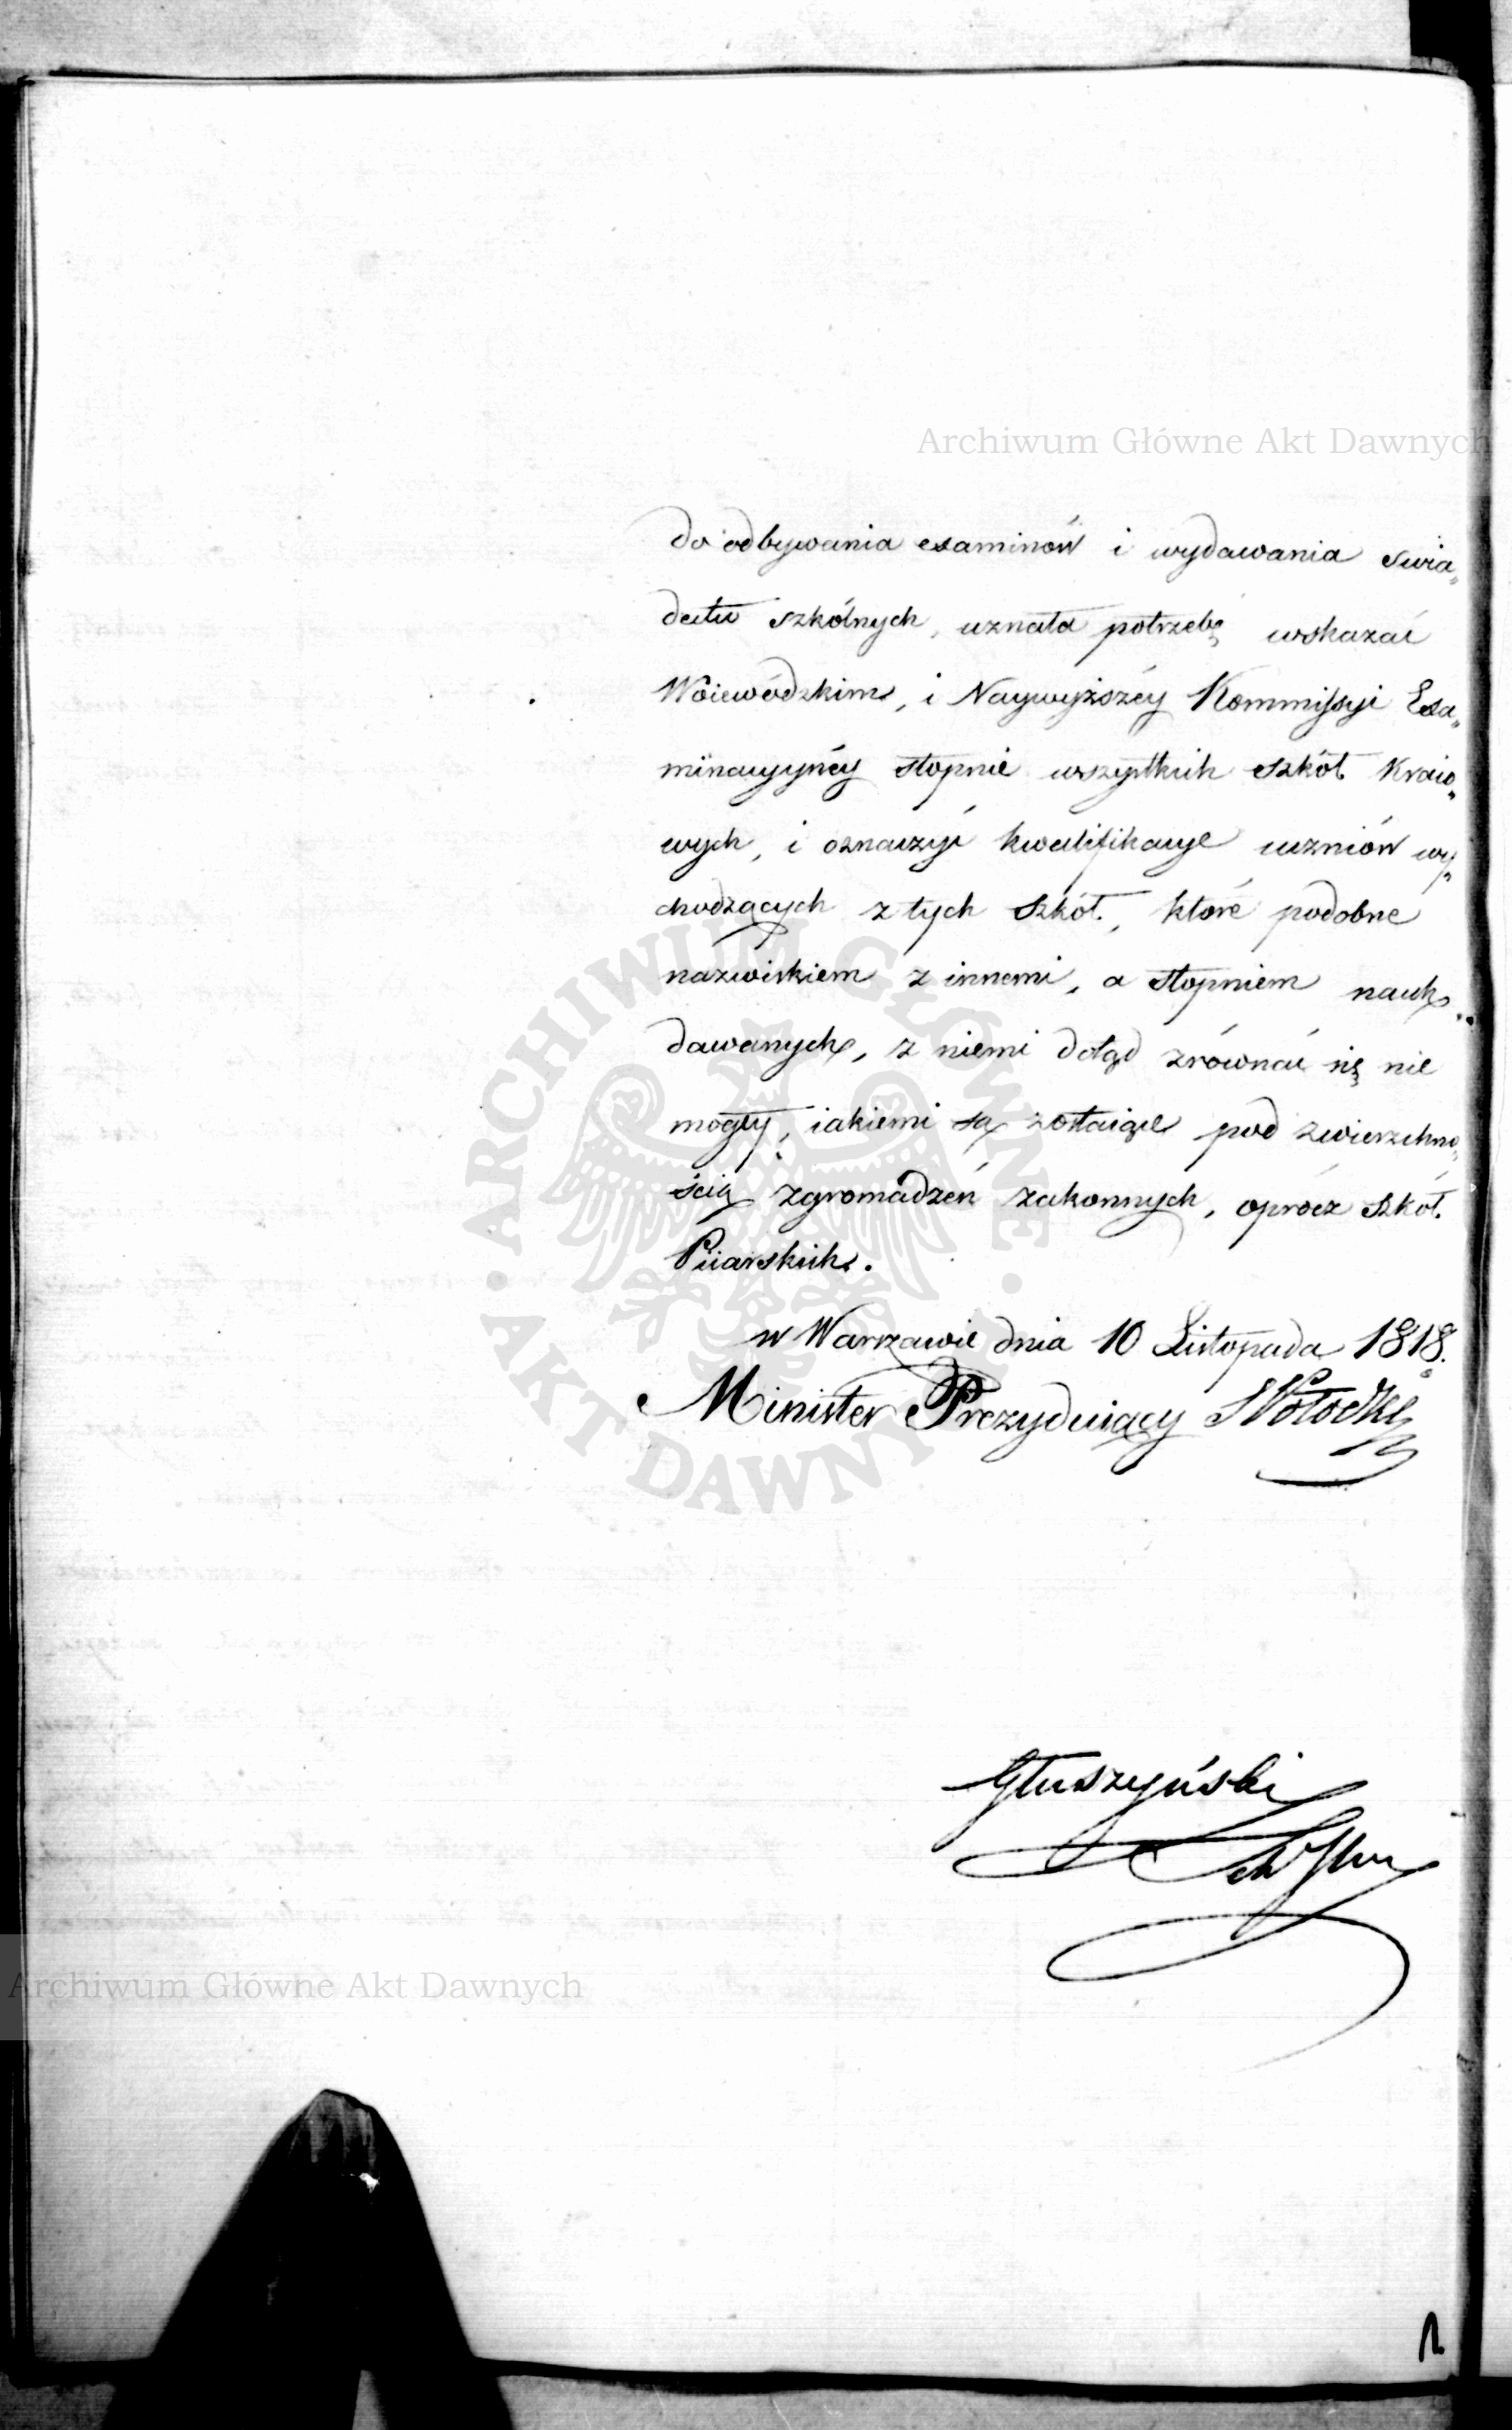 Archiwum Główne Akt Dawnych
do odbywania examinów i wydawania świa„
dectw szkólnych, uznała potrzebę wskazać
Woiewódzkim, i Naywyższéy Kommissyi Exa„
minacyynéy stopnie wszystkich szkół kraio„
wych, i oznaczyć kwalifikacye uczniów wy„
chodzących z tych szkół, które podobne
nazwiskiem z innemi, a stopniem nauk
dawanych, z niemi dotąd zrównać się nie
mogły, iakiemi są zostaiące pod zwierzchno„
ścią zgromadzeń zakonnych, oprócz szkół
Piiarskich.
w Warszawie dnia 10 Listopada 1818.
Minister Prezyduiący S Potocki
Głuszyński
ARCHIWUM GŁÓWNE AKT DAWNYCH
Archiwum Główne Akt Dawnych